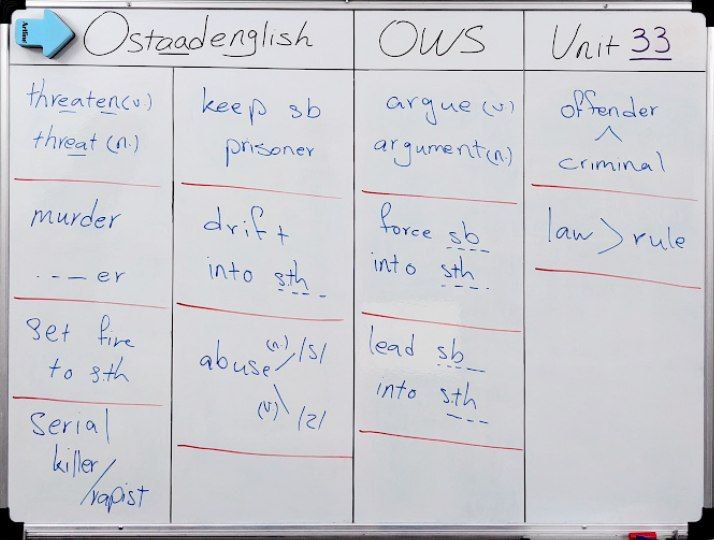 Artline
Ostaadenglish
OWS
Unit 33
threaten (v.)
threat (n.)
murder
---er
set fire
to s.th
serial
killer/
rapist
keep sb
prisoner
drift
into sth
abuse (n.) /s/
(v) /z/
argue (v.)
argument (n.)
force sb
into sth
lead sb
into sth
offender
^
criminal
law > rule